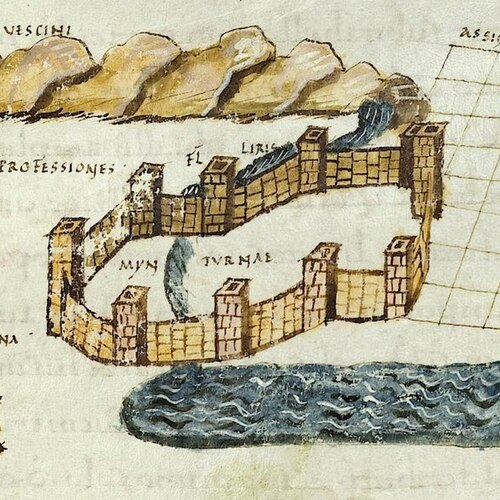 VESCINI
ASSI
PROFESSIONES
FL LIRIS
MYN TVRNAE
NA